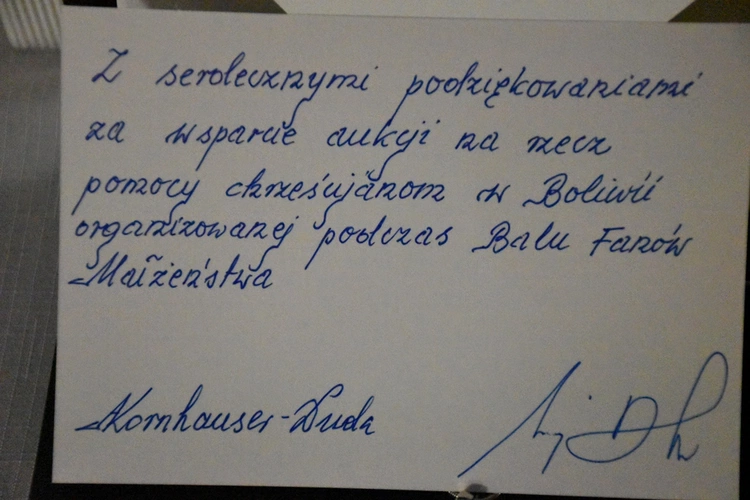 Z serdecznymi podziękowaniami
za wsparcie aukcji na rzecz
pomocy chrześcijanom w Boliwii
organizowanej podczas Balu Fanów
Małżeństwa
Kornhauser-Duda